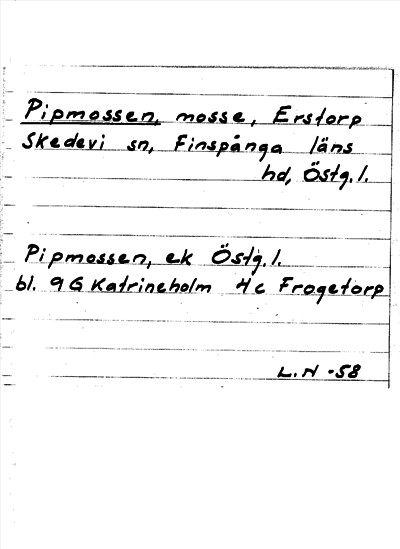 Pipmossen, mosse, Erstorp
Skedevi sn, Finspånga läns
hd, Östg.l.
Pipmossen, ek Östg.l.
bl. 9G Katrineholm 4c Frogetorp
L.H -58